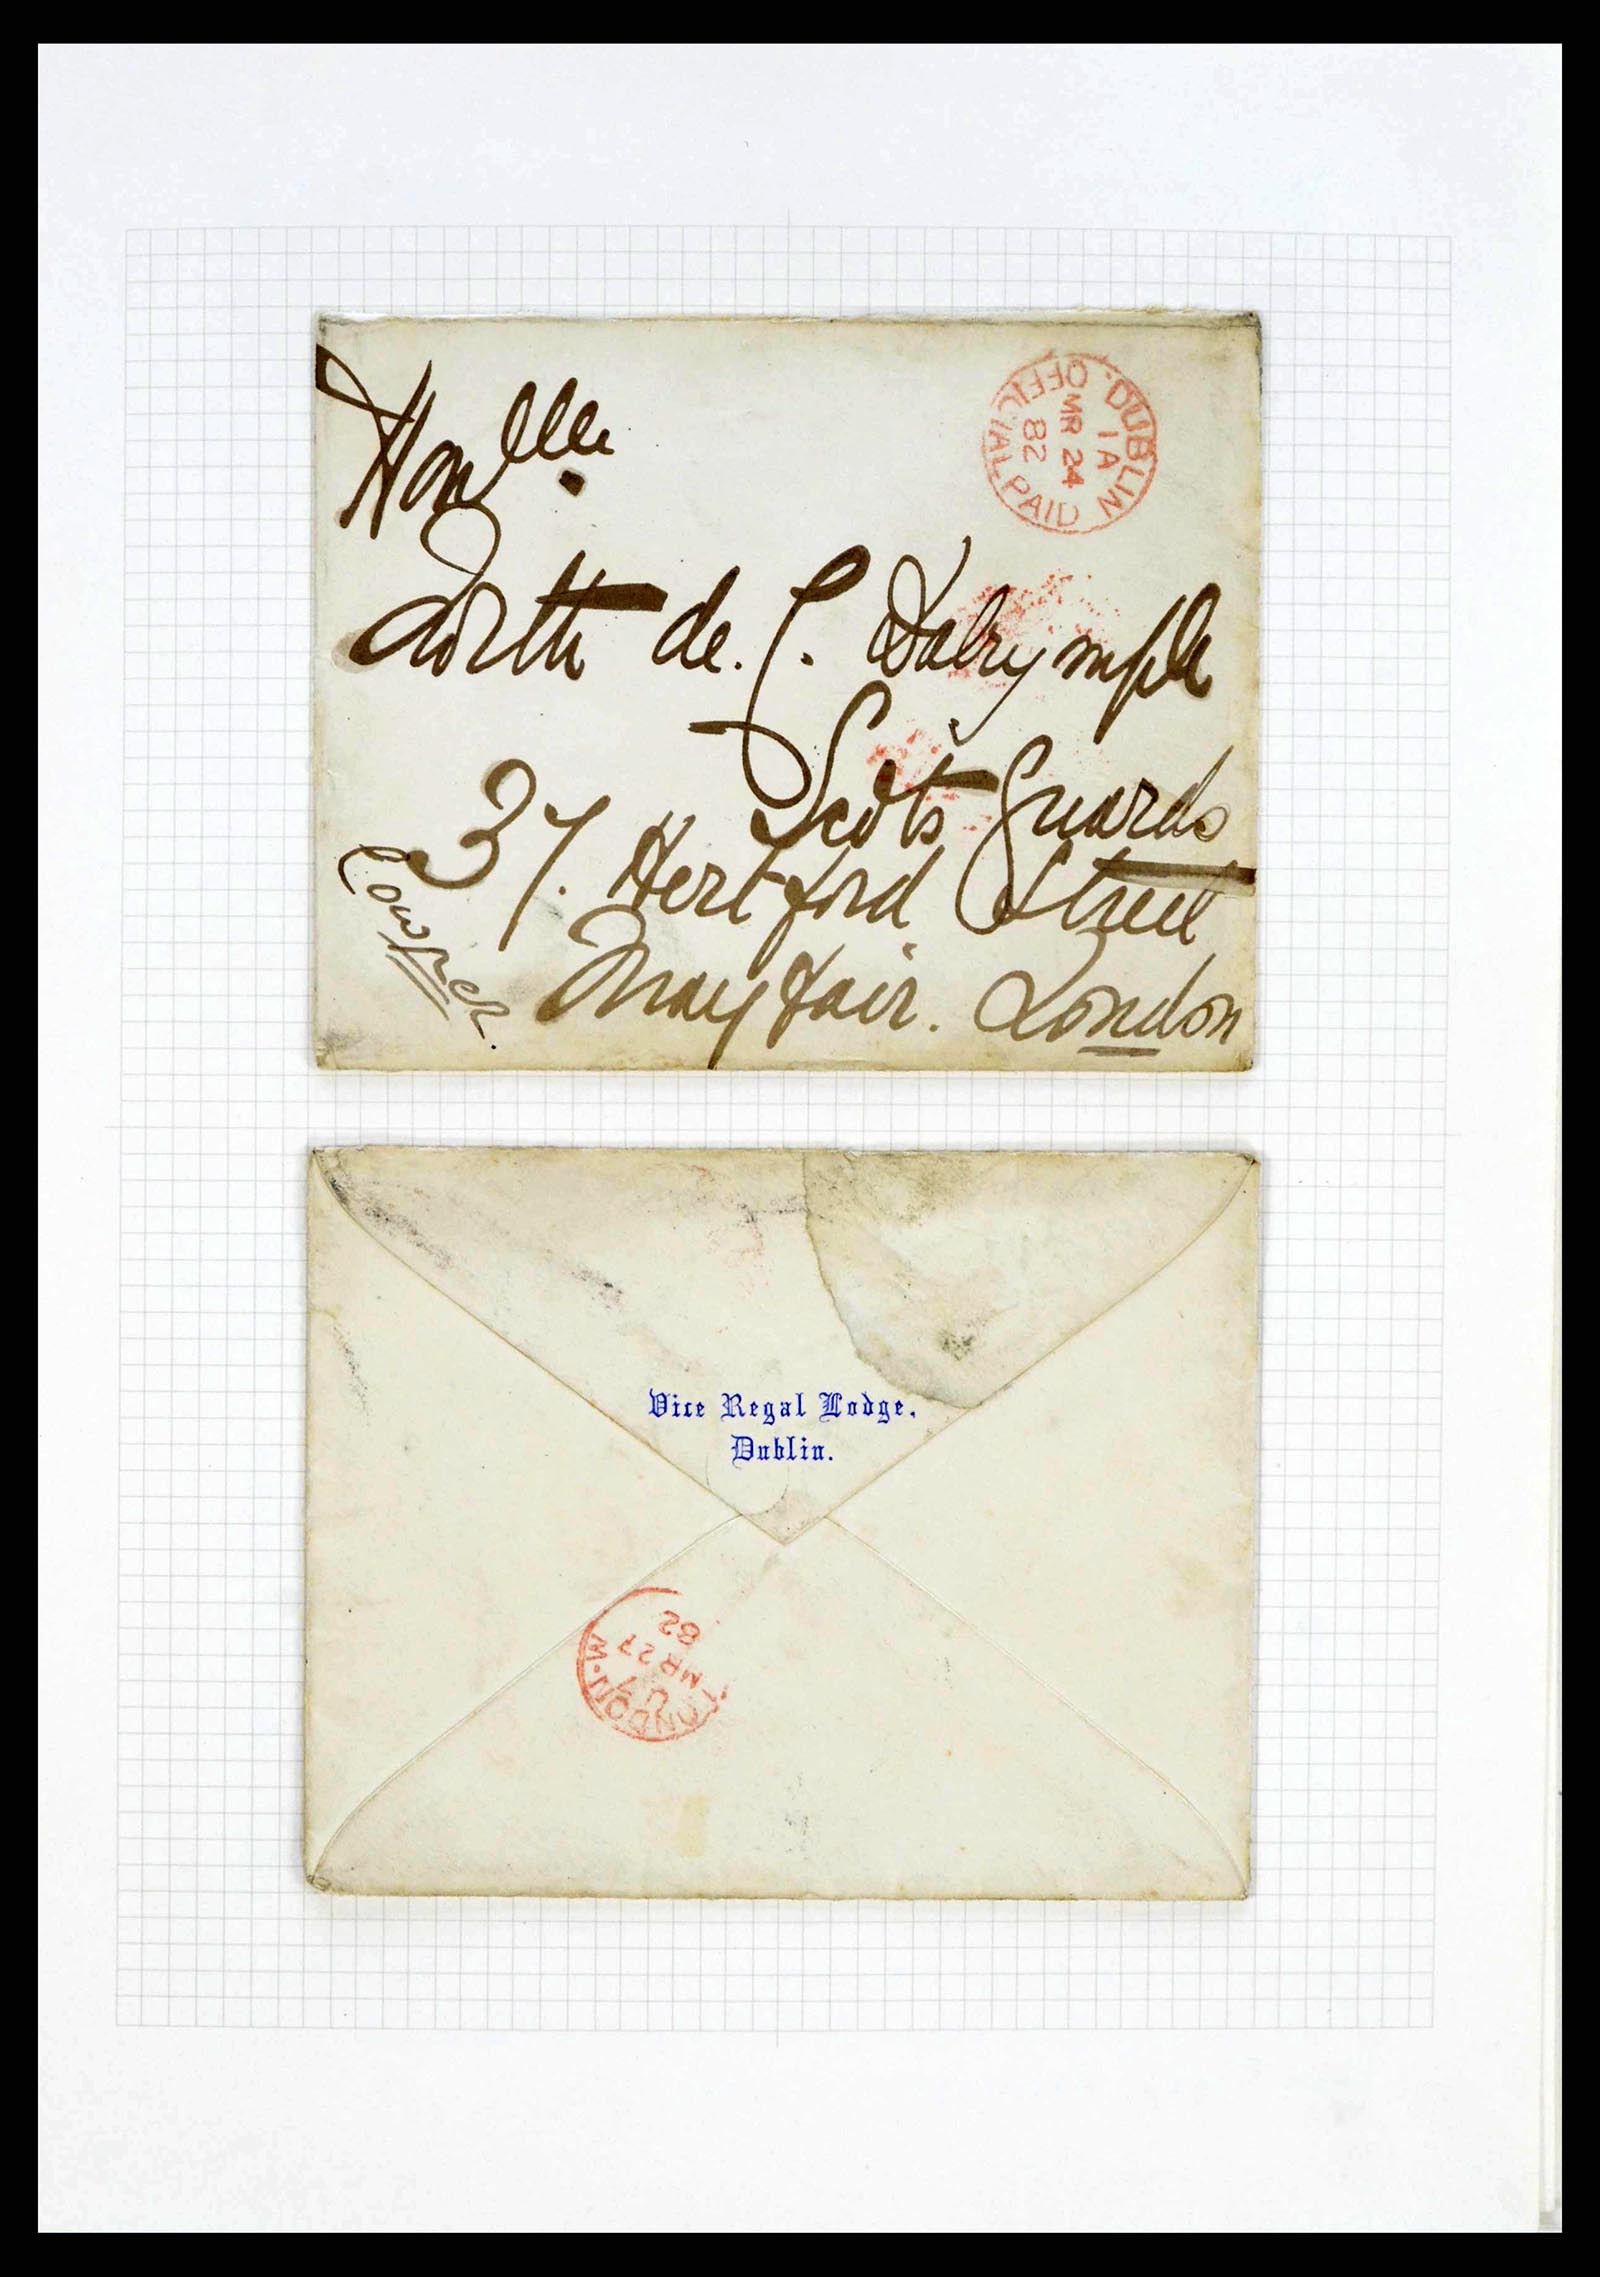 Honble
North de. C. Dalrymple
Scots Guards
37. Hertford Street
Mayfair. London
Cowper.
DUBLIN. OFFICIAL PAID
1A
MR 24
82
Vice Regal Lodge,
Dublin.
LONDON.W
MR 27
82